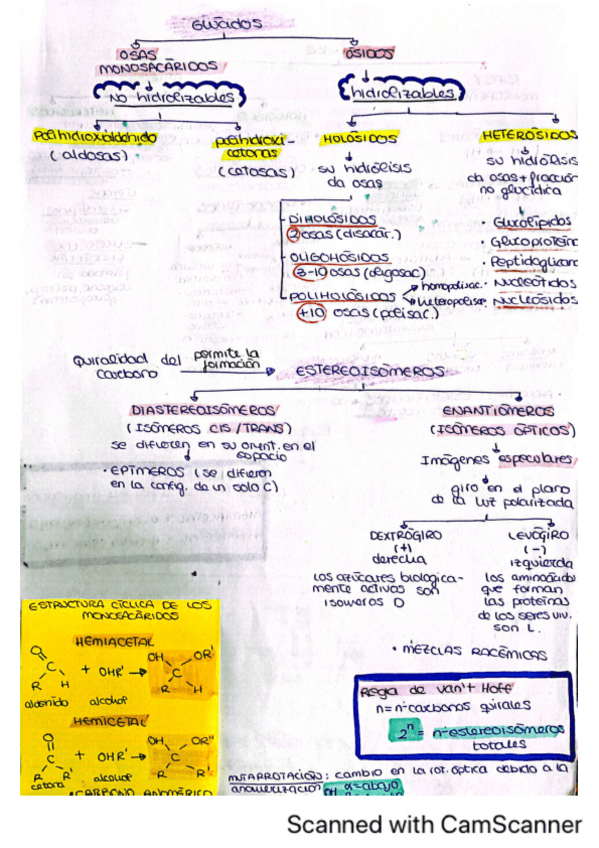 GLÚCIDOS
OSAS
MONOSACÁRIDOS
ÓSIDOS
NO hidrolizables
hidrolizables
Polihidroxialdehido
(aldosas)
polihidroxi-
cetonas
(cetosas)
HOLÓSIDOS
su hidrólisis
da osas
HETERÓSIDOS
su hidrólisis
da osas + fracción
no glucídica
DIHOLÓSIDOS
2 osas (disacár.)
OLIGOHÓSIDOS
3-10 osas (oligosac)
POLIHOLÓSIDOS
+10 osas (polisac.)
homopolisac.
heteropolisac.
· Glucolípidos
· Glucoproteín
· Peptidoglican
· Nucleótidos
· Nucleósidos
Quiralidad del
carbono
permite la
formación
ESTEREOISÓMEROS
DIASTEREOISÓMEROS
(ISÓMEROS CIS/TRANS)
se difieren en su orient. en el
espacio
· EPÍMEROS (se difieren
en la config. de un solo C)
ENANTIÓMEROS
(ISÓMEROS ÓPTICOS)
Imágenes especulares
giro en el plano
de la luz polarizada
DEXTRÓGIRO
(+)
derecha
los azúcares biologica-
mente activos son
isomeros D
LEVÓGIRO
(-)
izquierda
los aminoácidos
que forman
las proteínas
de los seres viv.
son L.
· MEZCLAS RACÉMICAS
Regla de van't Hoff
n = nº carbonos quirales
2ⁿ = nº estereoisómeros
totales
ESTRUCTURA CÍCLICA DE LOS
MONOSACÁRIDOS
HEMIACETAL
O
C
R H
+ OHR'
OH OR'
C
R H
aldehido alcohol
HEMICETAL
O
C
R R'
+ OHR'
OH OR''
C
R R'
cetona alcohol
· CARBONO ANOMÉRICO
MUTARROTACIÓN: cambio en la rot. óptica debido a la
anomerización OH α=abajo
Scanned with CamScanner